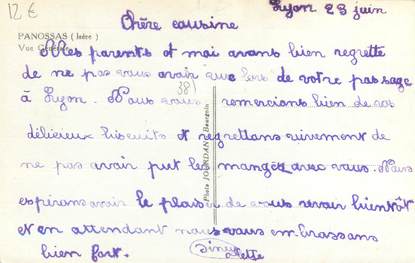 12 €
Lyon 23 juin
Chère cousine
PANOSSAS (Isère)
Mes parents et mai avans bien regretté
de ne pas vous avoir que lors de votre passage
à Lyon. Nous vous remercions bien de vos
38
délicieux biscuits et regrettans vivement de
ne pas avoir put les mangés avec vous. Nous
espérans avoir le plaisir de vous revoir bientôt
et en attendant nous vous embrassans
bien fort.
Photo JOURDAN, Bourgoin